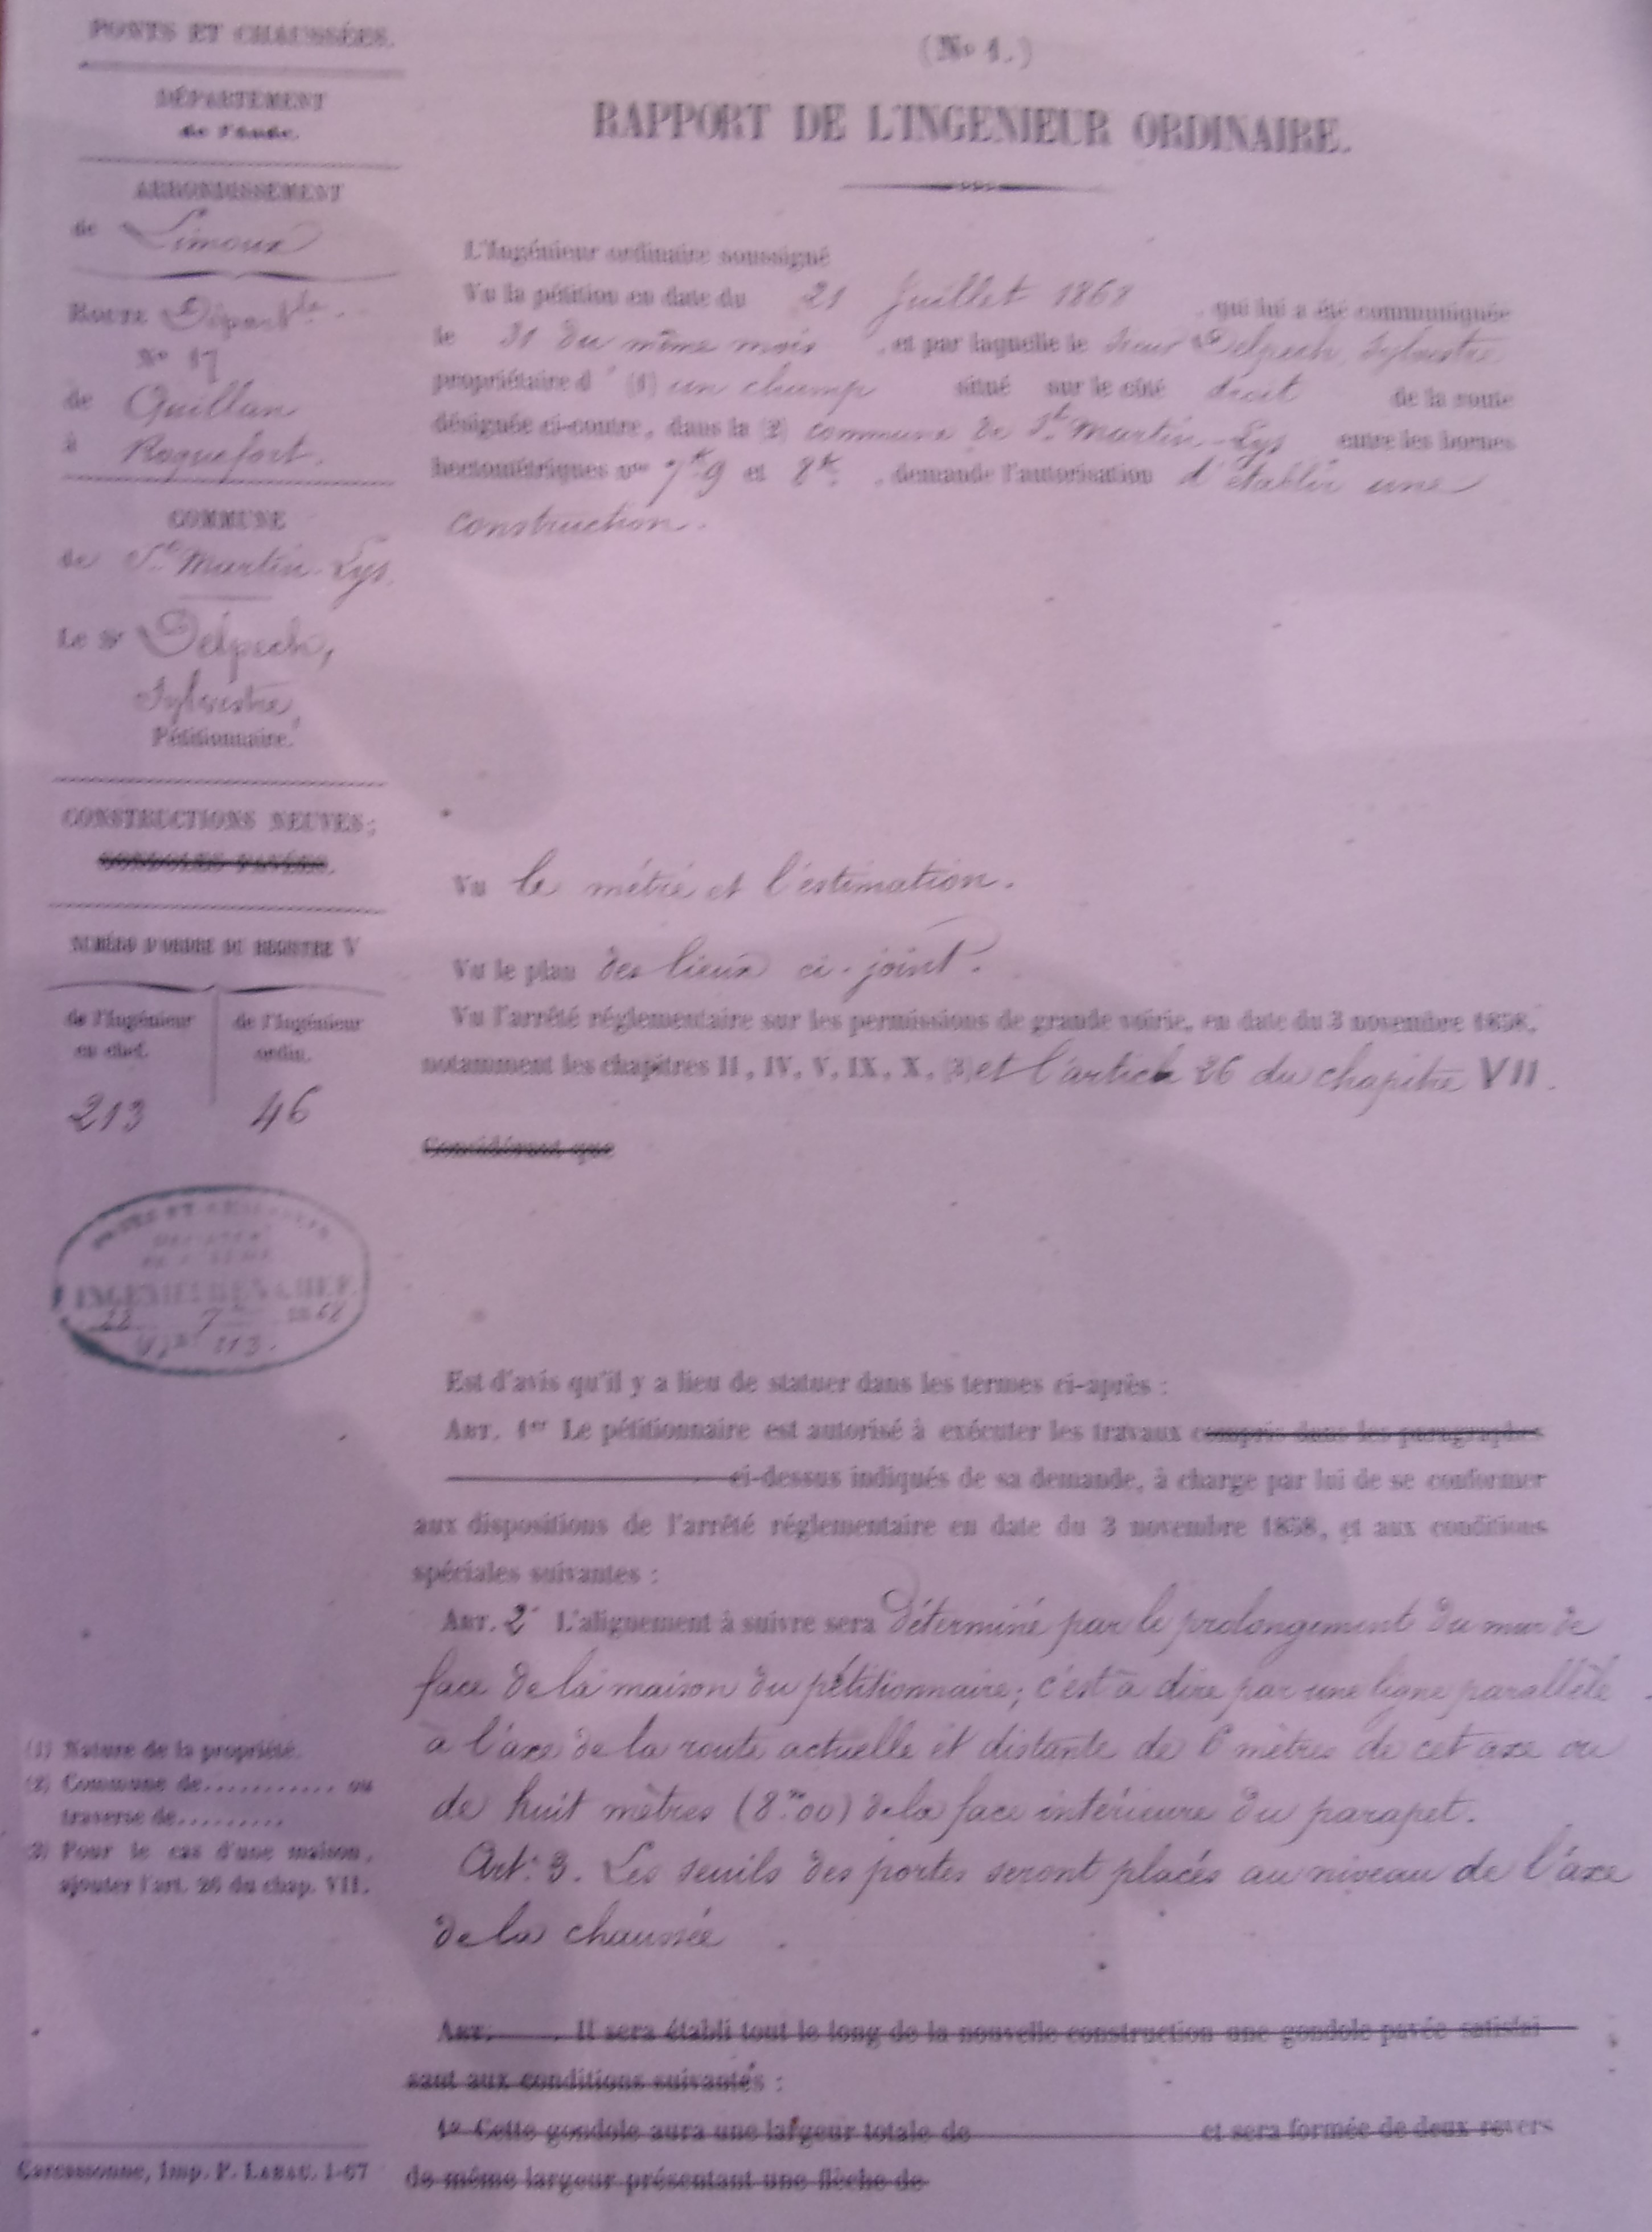 PONTS ET CHAUSSÉES.
DÉPARTEMENT
de l'Aude.
ARRONDISSEMENT
de Limoux
ROUTE Départle
No 17
de Quillan
à Roquefort.
COMMUNE
de St Martin-Lys.
Le Sr Delpech,
Sylvestre,
Pétitionnaire.
CONSTRUCTIONS NEUVES;
GONDOLES PAVÉES.
NUMÉRO D'ORDRE DU REGISTRE V
de l'Ingénieur en chef.
de l'Ingénieur ordin.
213
46
PONTS ET CHAUSSÉES
INGÉNIEUR EN CHEF
213.
(1) Nature de la propriété.
(2) Commune de............ ou
traverse de.........
(3) Pour le cas d'une maison,
ajouter l'art. 26 du chap. VII.
Carcassonne, Imp. P. LABAU. 1-67
(No 1.)
RAPPORT DE L'INGENIEUR ORDINAIRE.
L'Ingénieur ordinaire soussigné
Vu la pétition en date du 21 Juillet 1868, qui lui a été communiquée
le 31 du même mois, et par laquelle le sieur Delpech, Sylvestre
propriétaire d' (1) un champ situé sur le côté droit de la route
désignée ci-contre, dans la (2) commune de St Martin-Lys entre les bornes
hectométriques nos 7k 9 et 8k, demande l'autorisation d'établir une
construction.
Vu le métré et l'estimation.
Vu le plan des lieux ci-joint.
Vu l'arrêté réglementaire sur les permissions de grande voirie, en date du 3 novembre 1858,
notamment les chapitres II, IV, V, IX, X, (3) et l'article 26 du chapitre VII.
Considérant que
Est d'avis qu'il y a lieu de statuer dans les termes ci-après :
ART. 1er Le pétitionnaire est autorisé à exécuter les travaux compris dans les paragraphes
ci-dessus indiqués de sa demande, à charge par lui de se conformer
aux dispositions de l'arrêté réglementaire en date du 3 novembre 1858, et aux conditions
spéciales suivantes :
ART. 2 L'alignement à suivre sera déterminé par le prolongement du mur de
face de la maison du pétitionnaire; c'est à dire par une ligne parallèle
à l'axe de la route actuelle et distante de 6 mètres de cet axe ou
de huit mètres (8m00) de la face intérieure du parapet.
Art. 3. Les seuils des portes seront placés au niveau de l'axe
de la chaussée
ART. . Il sera établi tout le long de la nouvelle construction une gondole pavée satisfai-
sant aux conditions suivantes :
1o Cette gondole aura une largeur totale de et sera formée de deux revers
de même largeur présentant une flèche de